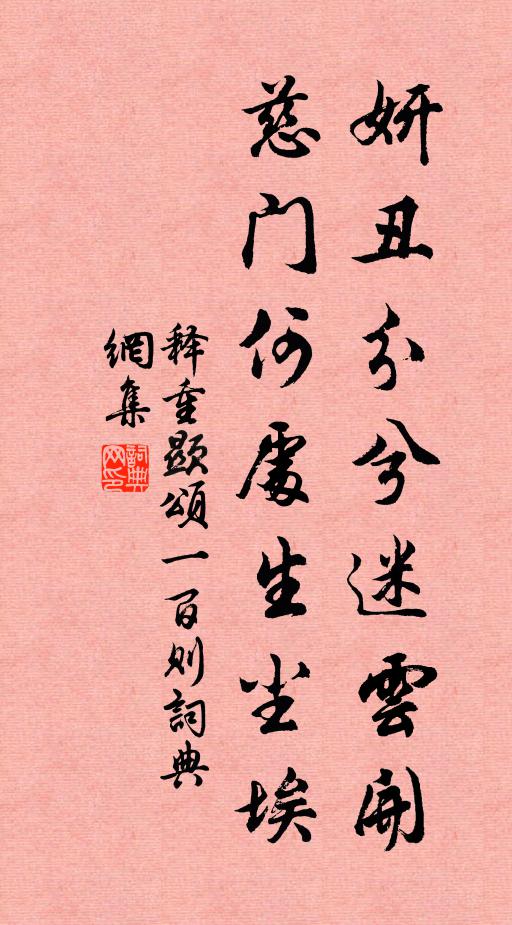 妍丑分兮迷雲開
慈門何處生尘埃
释重顯頌一百则詞典
網集
詞典
网印